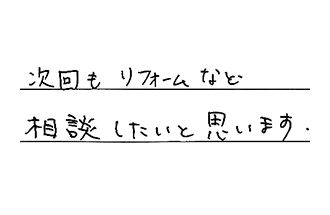 次回も リフォームなど
相談したいと思います.